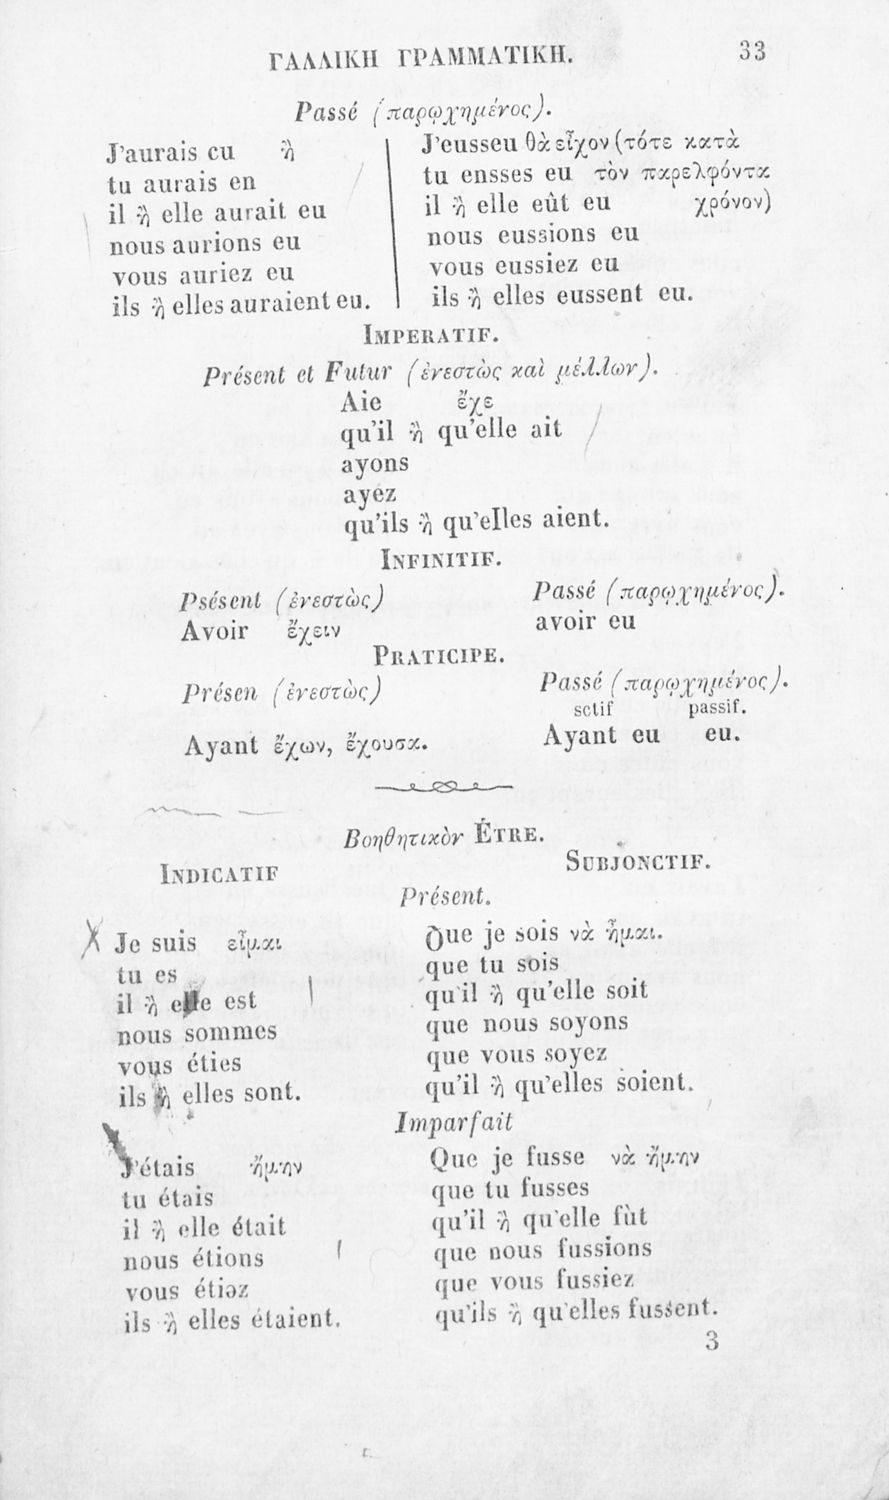 ΓΑΛΛΙΚΗ ΓΡΑΜΜΑΤΙΚΗ. 33
Passé (παρῳχημένος).
J'aurais cu ἢ
tu aurais en
il ἢ elle aurait eu
nous aurions eu
vous auriez eu
ils ἢ elles auraient eu.
J'eusseu θὰ εἶχον (τότε κατὰ
tu ensses eu τὸν παρελφόντα
il ἢ elle eût eu χρόνον)
nous eussions eu
vous eussiez eu
ils ἢ elles eussent eu.
IMPERATIF.
Présent et Futur (ἐνεστὼς καὶ μέλλων).
Aie ἔχε
qu'il ἢ qu'elle ait
ayons
ayéz
qu'ils ἢ qu'elles aient.
INFINITIF.
Psésent (ἐνεστὼς)
Avoir ἔχειν
Passé (παρῳχημένος).
avoir eu
PRATICIPE.
Présen (ἐνεστὼς)
Ayant ἔχων, ἔχουσα.
Passé (παρῳχημένος).
sctif passif.
Ayant eu eu.
Βοηθητικὸν ÊTRE.
INDICATIF
SUBJONCTIF.
Présent.
Je suis εἶμαι
tu es
il ἢ elle est
nous sommes
vous éties
ils ἢ elles sont.
Que je sois νὰ ἦμαι.
que tu sois
qu'il ἢ qu'elle soit
que nous soyons
que vous soyez
qu'il ἢ qu'elles soient.
Imparfait
J'étais ἤμην
tu étais
il ἢ elle était
nous étions
vous étiəz
ils ἢ elles étaient.
Que je fusse νὰ ἤμην
que tu fusses
qu'il ἢ qu'elle fùt
que nous fussions
que vous fussiez
qu'ils ἢ qu'elles fussent.
3